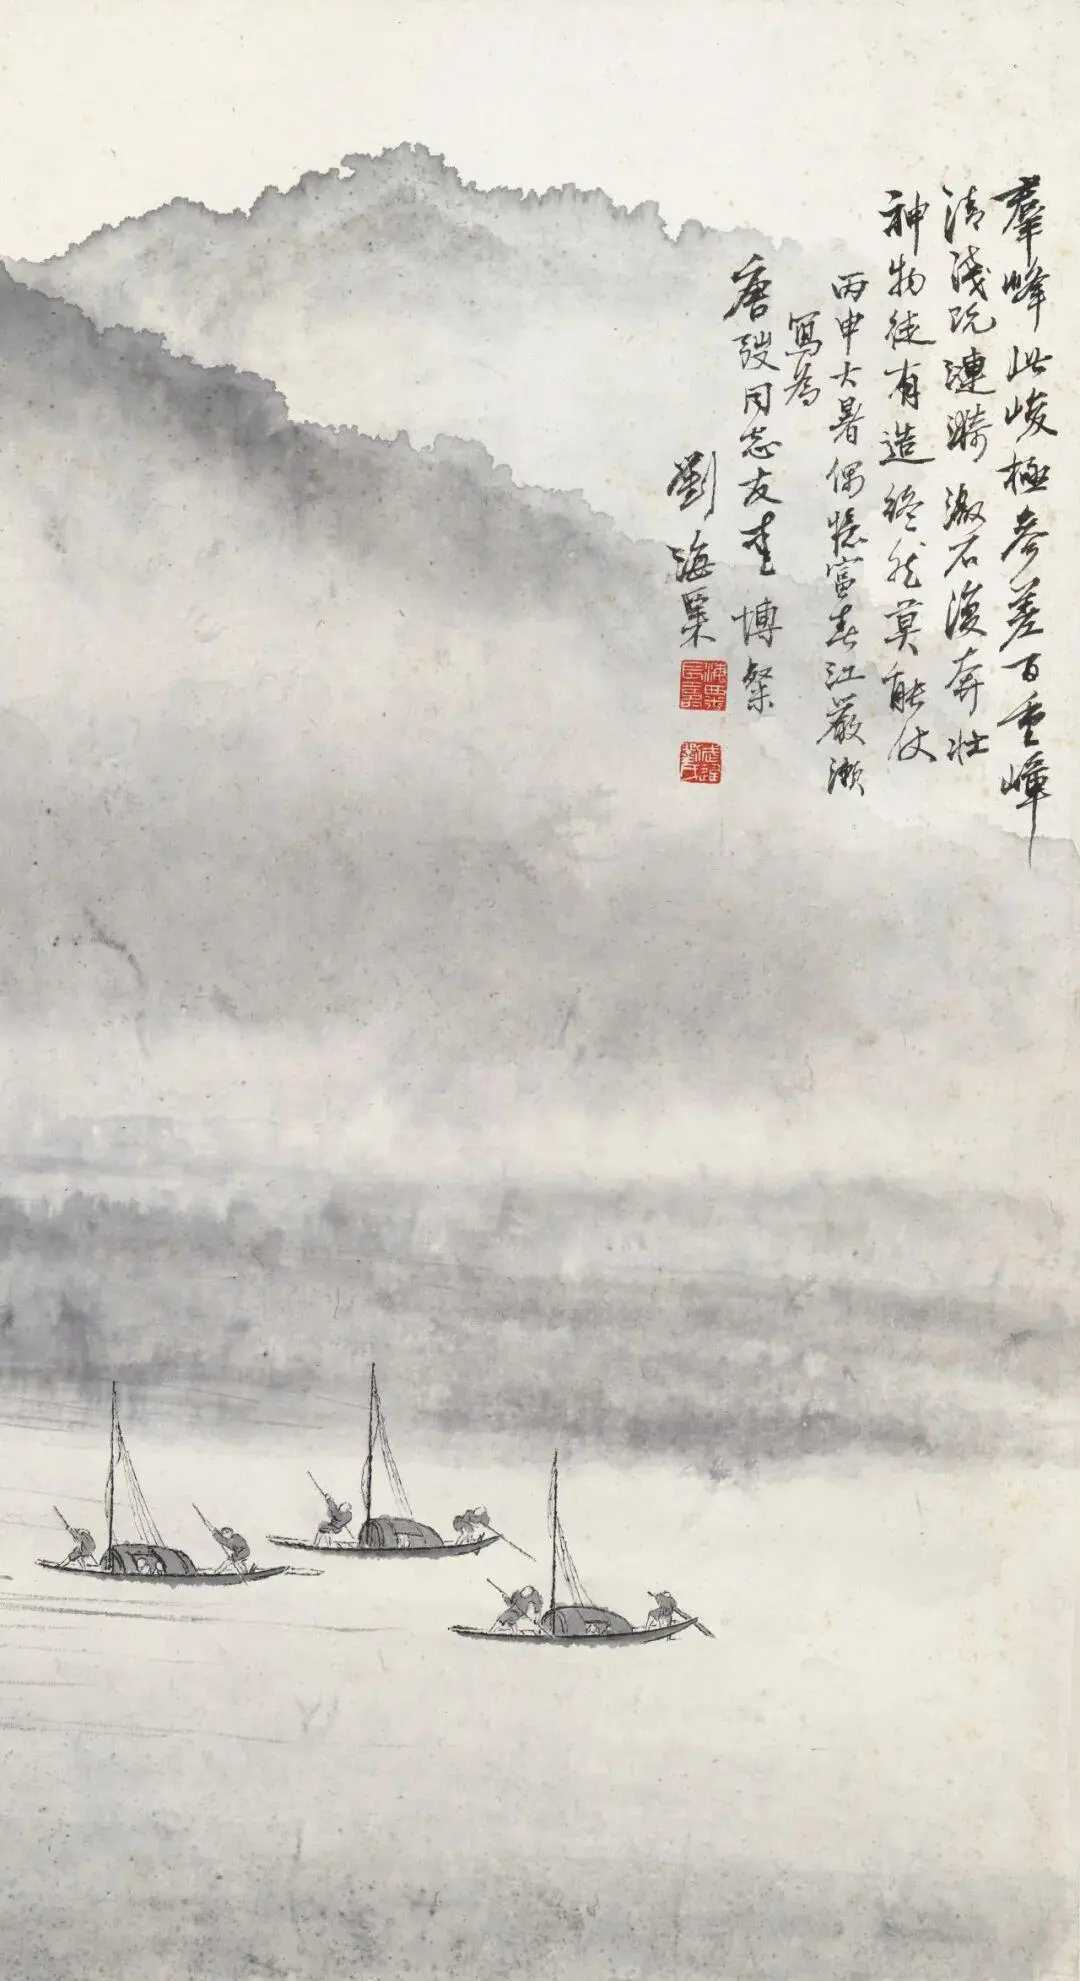 羣峰此峻極參差百重嶂
清淺既漣漪激石復奔壯
神物徒有造終然莫能仗
丙申大暑偶憶富春江嚴瀨
寫為
唐弢同志友 博粲
劉海粟